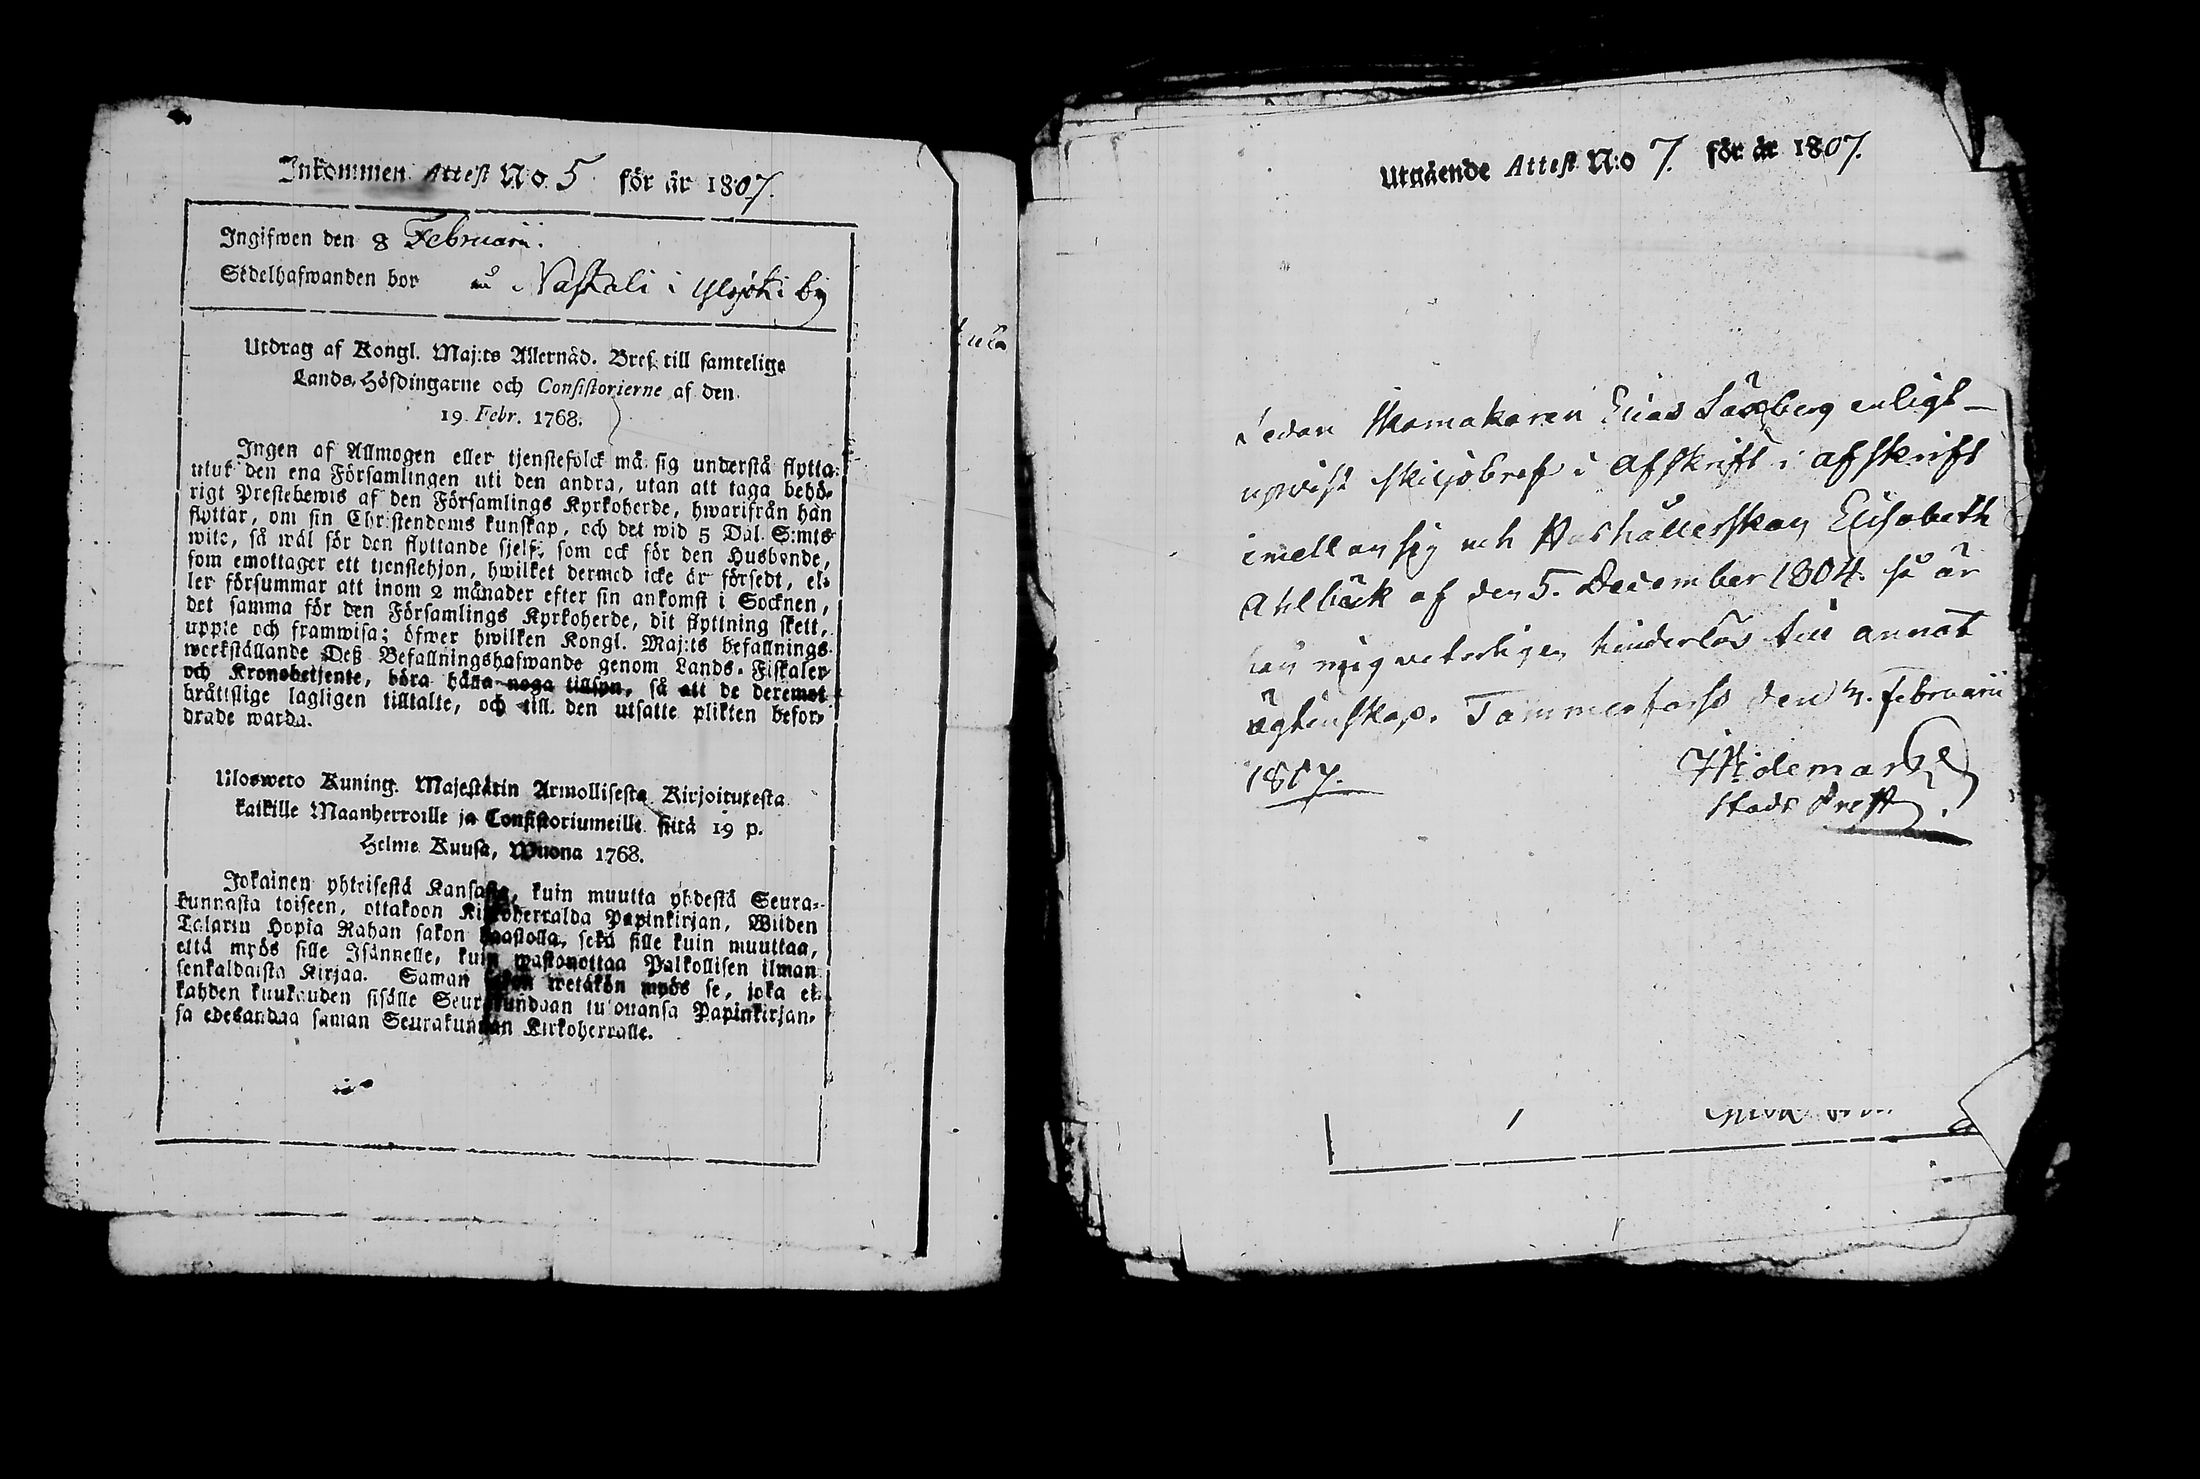 Inkommen Attest N:o 5 för år 1807.
Ingifwen den 8 Februarii.
Sedelhafwanden bor på Naskali i Ylöjärvi by
Utdrag af Kongl. Maj:ts Allernåd. Bref till samtelige
Lands-Höfdingarne och Consistorierne af den
19 Febr. 1768.
Ingen af Allmogen eller tjenstefolck må sig understå flytta
utur den ena Församlingen uti den andra, utan att taga behö-
rigt Prestebewis af den Församlings Kyrkoherde, hwarifrån han
flyttar, om sin Christendoms kunskap, och det wid 5 Dal. S:mts
wite, så wäl för den flyttande sjelf, som ock för den Husbonde,
som emottager ett tjenstehjon, hwilket dermed icke är försedt, el-
ler försummar att inom 2 månader efter sin ankomst i Socknen,
det samma för den Församlings Kyrkoherde, dit flyttning skett,
uppte och framwisa; öfwer hwilken Kongl. Maj:ts befallnings
werkställande Deß Befallningshafwande genom Lands-Fiskaler
och Kronobetjente, böra hålla noga tillsyn, så att de deremot
bråttslige lagligen tilltalte, och till den utsatte plikten befor-
drade warda.
Ulosweto Kuning. Majestätin Armollisesta Kirjoituxesta
kaikille Maanherroille ja Consistoriumeille siitä 19 p.
Helme Kuusa, Wuona 1768.
Jokainen yhteisestä Kansasta, kuin muutta yhdestä Seura-
kunnasta toiseen, ottakoon Kirkoherralda Papinkirjan, Wiiden
Talarin Hopia Rahan sakon haastolla, sekä sille kuin muuttaa,
että myös sille Isännelle, kuin wastanottaa Palkollisen ilman
senkaldaista Kirjaa. Saman sakon wetäkön myös se, joka ei
kahden kuukauden sisälle Seurakundaan tultuansa Papinkirjan-
sa edesandaa saman Seurakunnan Kirkoherralle.
Utgående Attest N:o 7. för år 1807.
Sedan Skomakaren Elias Saxberg enligt
upvist skiljobref i afskrift i afskrift
imellan sig och Hushållerskan Elisabeth
Ahlbäck af den 5. December 1804. så är
han mig veterligen hinderlös till annat
ägtenskap. Tammerforss den 4. Februarii
1807.
Widemark
Stads Prest.